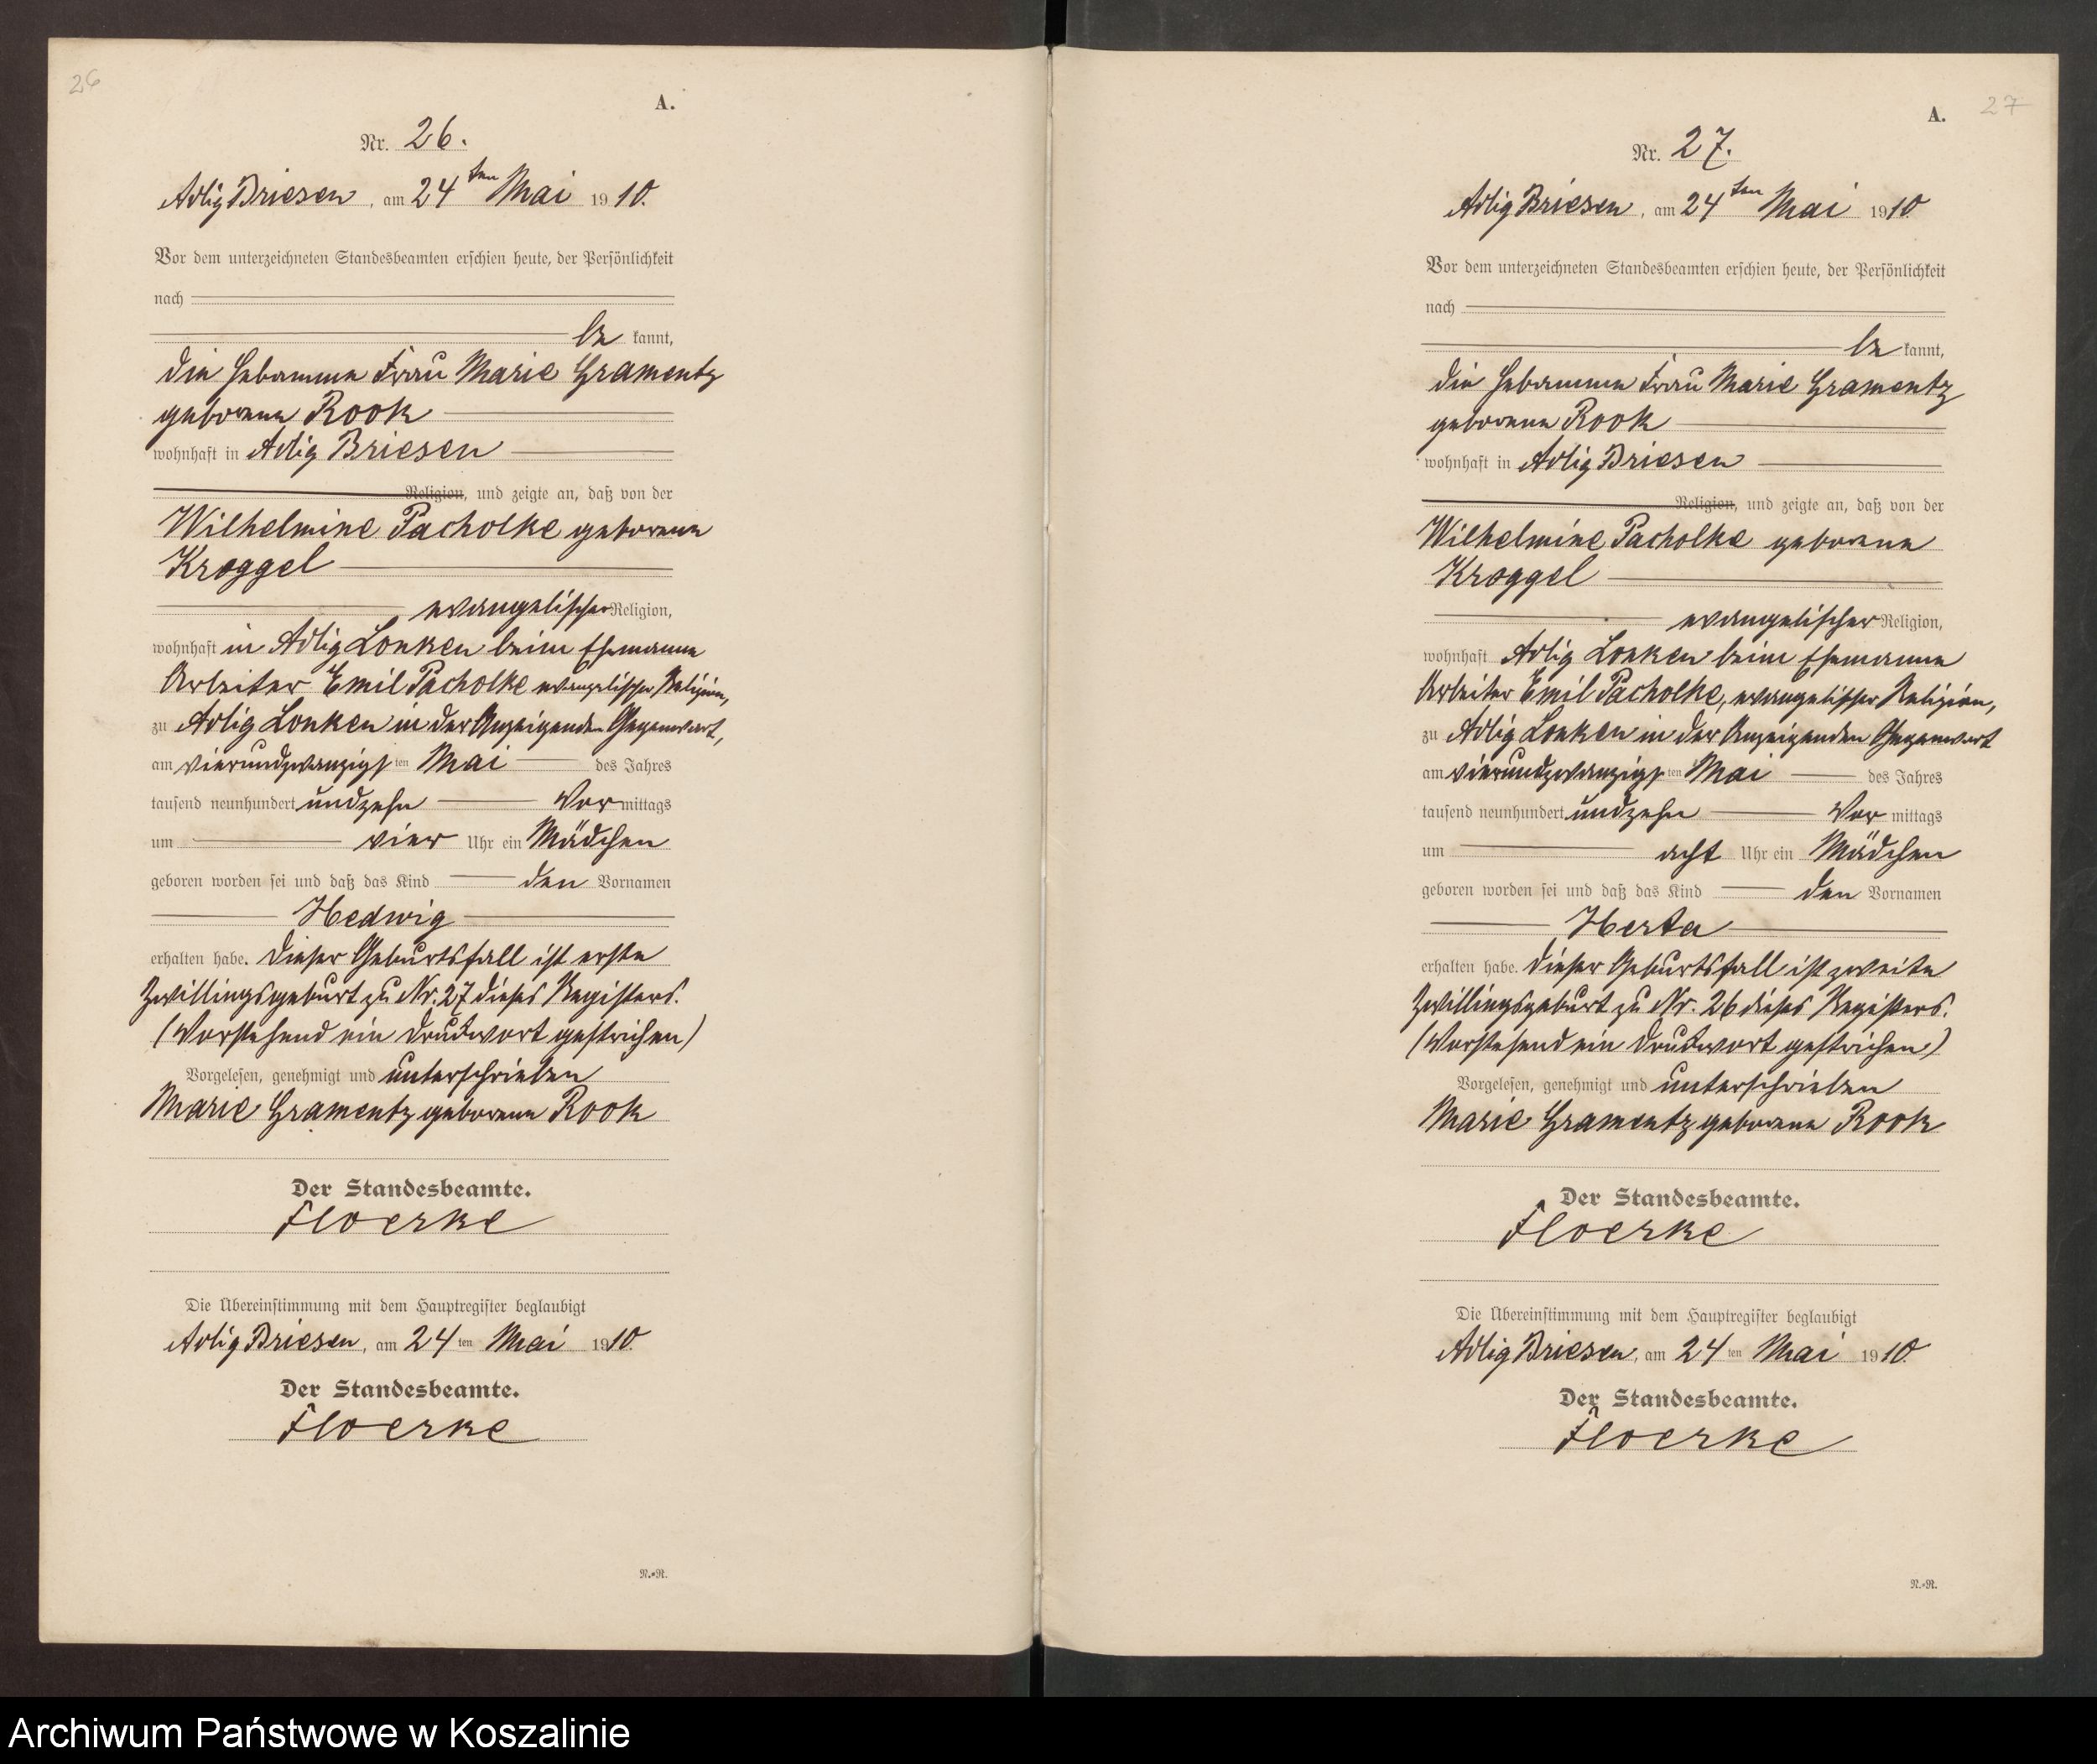 26
A.
Nr. 26.
Adlig Briesen, am 24ten Mai 1910.
Vor dem unterzeichneten Standesbeamten erschien heute, der Persönlichkeit
nach
be kannt,
die Hebamme Frau Marie Gramentz
geborene Rook
wohnhaft in Adlig Briesen
Religion, und zeigte an, daß von der
Wilhelmine Pacholke geborene
Kroggel
evangelischer Religion,
wohnhaft in Adlig Lonken beim Ehemanne
Arbeiter Emil Pacholke evangelischer Religion,
zu Adlig Lonken in der Anzeigenden Gegenwart,
am vierundzwanzigsten Mai des Jahres
tausend neunhundert undzehn Vormittags
um vier Uhr ein Mädchen
geboren worden sei und daß das Kind den Vornamen
Hedwig
erhalten habe. Dieser Geburtsfall ist erste
Zwillingsgeburt zu Nr. 27 dieses Registers.
(Vorstehend ein Druckwort gestrichen)
Vorgelesen, genehmigt und unterschrieben
Marie Gramentz geborene Rook
Der Standesbeamte.
Floerke
Die Übereinstimmung mit dem Hauptregister beglaubigt
Adlig Briesen, am 24ten Mai 1910.
Der Standesbeamte.
Floerke
N.=R.
27
A.
Nr. 27.
Adlig Briesen, am 24ten Mai 1910
Vor dem unterzeichneten Standesbeamten erschien heute, der Persönlichkeit
nach
be kannt,
die Hebamme Frau Marie Gramentz
geborene Rook
wohnhaft in Adlig Briesen
Religion, und zeigte an, daß von der
Wilhelmine Pacholke geborene
Kroggel
evangelischer Religion,
wohnhaft Adlig Lonken beim Ehemanne
Arbeiter Emil Pacholke, evangelischer Religion,
zu Adlig Lonken in der Anzeigenden Gegenwart
am vierundzwanzigsten Mai des Jahres
tausend neunhundert undzehn Vor mittags
um acht Uhr ein Mädchen
geboren worden sei und daß das Kind den Vornamen
Herta
erhalten habe. Dieser Geburtsfall ist zweite
Zwillingsgeburt zu Nr. 26 dieses Registers.
(Vorstehend ein Druckwort gestrichen)
Vorgelesen, genehmigt und unterschrieben
Marie Gramentz geborene Rook
Der Standesbeamte.
Floerke
Die Übereinstimmung mit dem Hauptregister beglaubigt
Adlig Briesen, am 24ten Mai 1910.
Der Standesbeamte.
Floerke
N.=R.
Archiwum Państwowe w Koszalinie